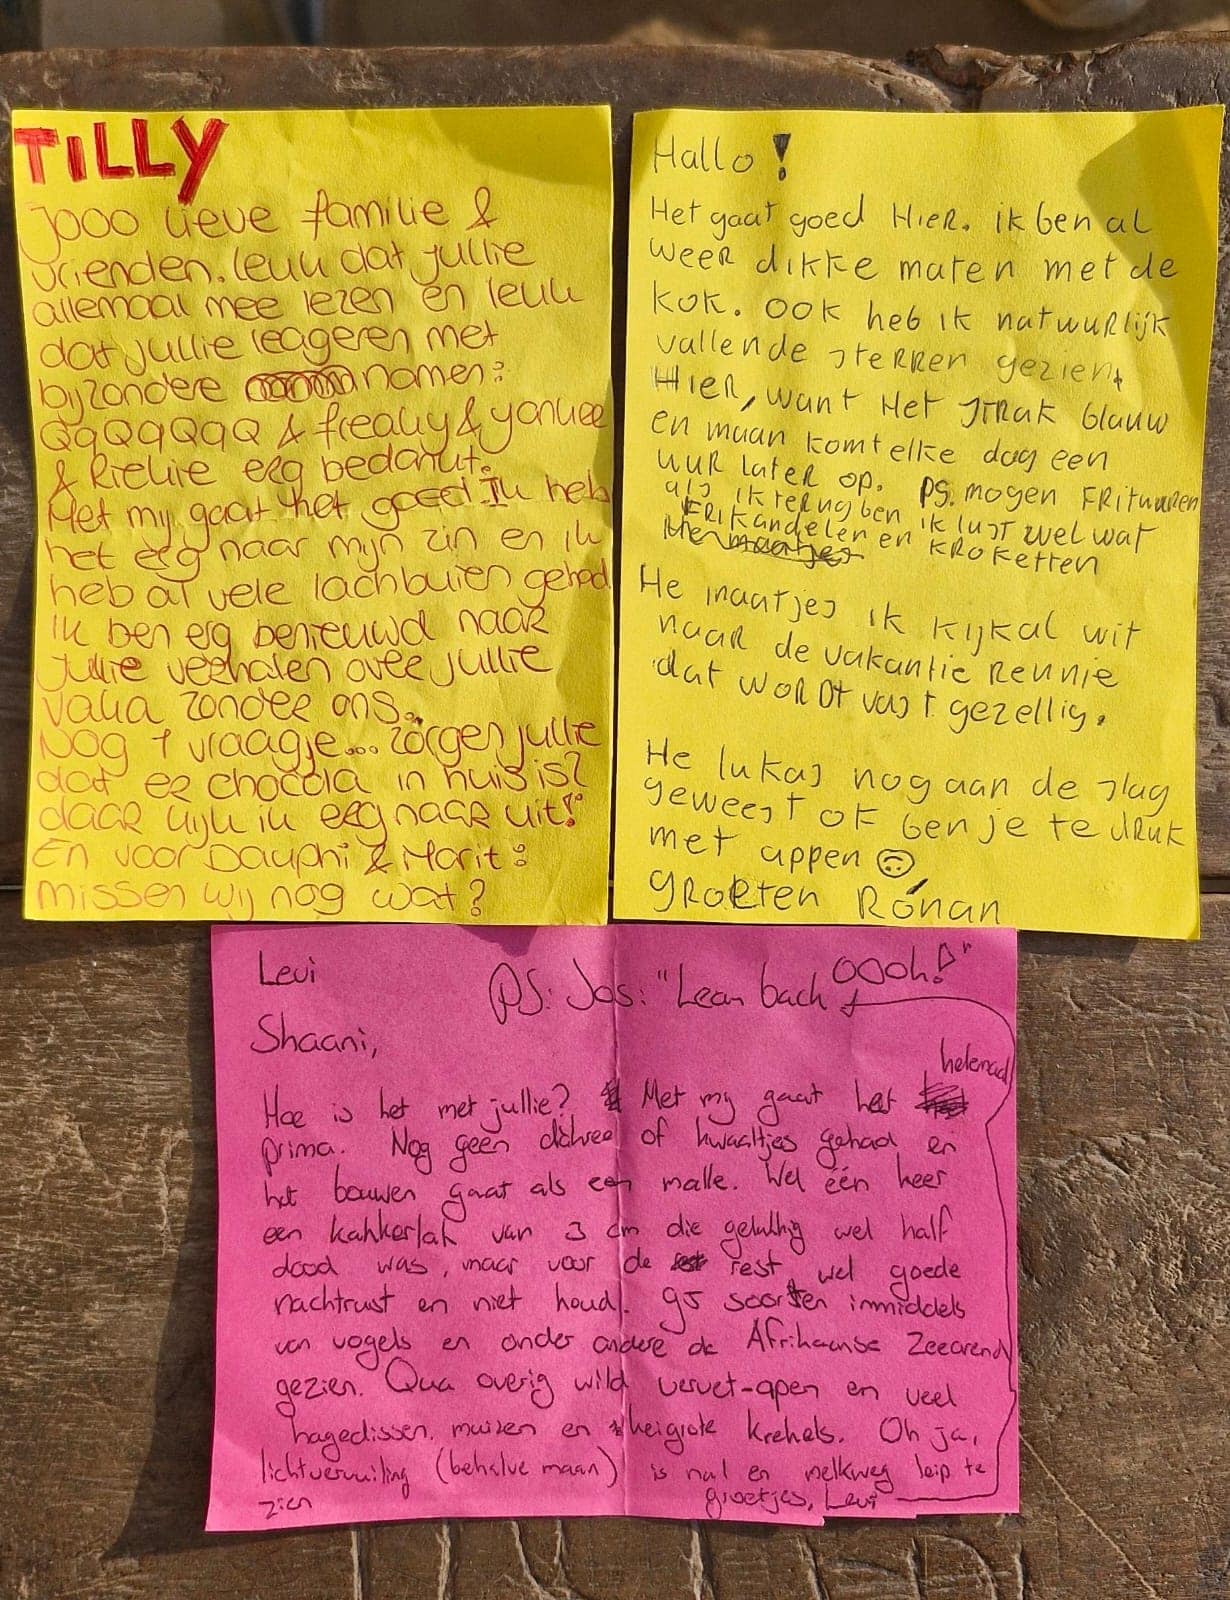 TILLY
Jooo lieve familie &
vrienden. leuk dat jullie
allemaal mee lezen en leuk
dat jullie reageren met
bijzondere namen:
QqQqQqQ & freaky & yankee
& Riekie erg bedankt.
Met mij gaat het goed Ik heb
het erg naar mijn zin en ik
heb al vele lachbuien gehad
Ik ben erg benieuwd naar
Jullie verhalen over jullie
vaka zonder ons.
Nog 1 vraagje... zorgen jullie
dat er chocola in huis is?
daar kijk ik erg naar uit!
En voor Dauphi & Marit:
missen wij nog wat?
Hallo!
Het gaat goed Hier. ik ben al
weer dikke maten met de
kok. ook heb ik natuurlijk
vallende sterren gezien
Hier, want Het strak blauw
en maan komt elke dag een
uur later op. PS. mogen Frituuren
als ik terug ben ik lust wel wat
FRikandelen en kroketten
He maatjes ik kijk al uit
naar de vakantie Reunie
dat wordt vast gezellig.
He lukas nog aan de slag
geweest of ben je te druk
met appen
groeten Rónan
Levi
PS: Jos: "Lean back oooh!"
Shaani,
Hoe is het met jullie? Met mij gaat het helemaal
prima. Nog geen diahree of kwaaltjes gehad en
het bouwen gaat als een malle. Wel één keer
een kakkerlak van 3 cm die gelukkig wel half
dood was, maar voor de rest wel goede
nachtrust en niet koud. 95 soorten inmiddels
van vogels en onder andere de Afrikaanse Zeearend
gezien. Qua overig wild vervet-apen en veel
hagedissen, muizen en keigrote krekels. Oh ja,
lichtvervuiling (behalve maan) is nul en melkweg leip te
zien
groetjes, Levi